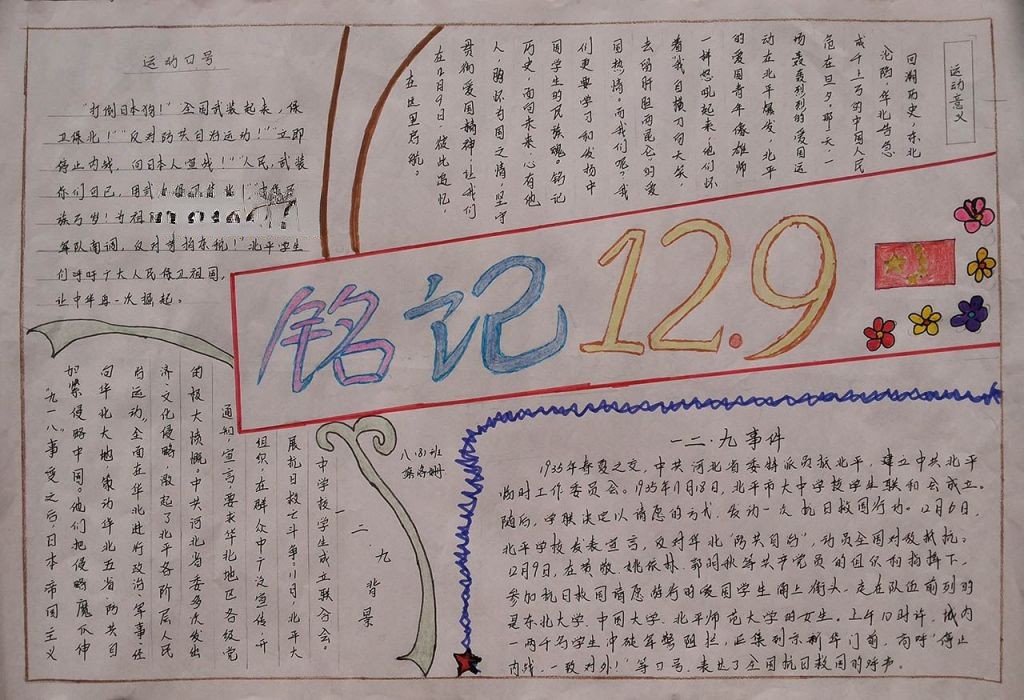 运动口号
"打倒日本狗!"全国武装起来,保
卫保北!"反对防共自治运动!"立即
停止内战,向日本人宣战!"人民,武装
你们自己,
族万岁!
们呼吁广大人民保卫祖国,
让中华再一次掘起。
运动意义
回溯历史,东北
沦陷,华北告急
成千上万的中国人民
危在旦夕。那天,一
场轰轰烈烈的爱国运
动在北平爆发,北平
的爱国青年像雄师
一样怒吼起来,他们怀
着"我自横刀向天笑,
去留肝胆两昆仑"的爱
国热情。而我们呢?我
们更要学习和发扬中
国学生的民族魂。铭记
历史,面向未来。心有他
人,胸怀为国之情,坚守
贯彻爱国精神,让我们
在12月9日彼此追忆,
在这里启航。
铭记12.9
一二·九背景
"九一八"事变之后,日本帝国主义
加紧侵略中国。他们把侵略魔爪伸
向华北大地,策动华北五省"防共自
治运动。"全面在华北进行政治、军事、经
济、文化侵略,激起了北平各阶层人民
的极大愤慨。中共河北省委多次发出
通知,宣言,要求华北地区各级党
组织,在群众中广泛宣传,开
展抗日救亡斗争。11月,北平大
中学校学生成立联合会。
八·(3)班
一二·九事件
1935年春夏之交,中共河北省委特派员抵北平,建立中共北平
临时工作委员会。1935年11月18日,北平市大中学校学生联和会成立。
随后,学联决定以请愿的方式,发动一次抗日救国行动。12月6日,
北平学校发表宣言,反对华北"防共自治",动员全国对敌抵抗。
12月9日,在黄敬、姚依林、郭明秋等共产党员的组织和指挥下,
参加抗日救国请愿游行的爱国学生涌上街头。走在队伍前列的
是东北大学、中国大学、北平师范大学的女生。上午10时许,城内
一两千号学生冲破军警阻拦,汇集到新华门前,高呼"停止
内战,一致对外!"等口号,表达了全国抗日救国的呼声。